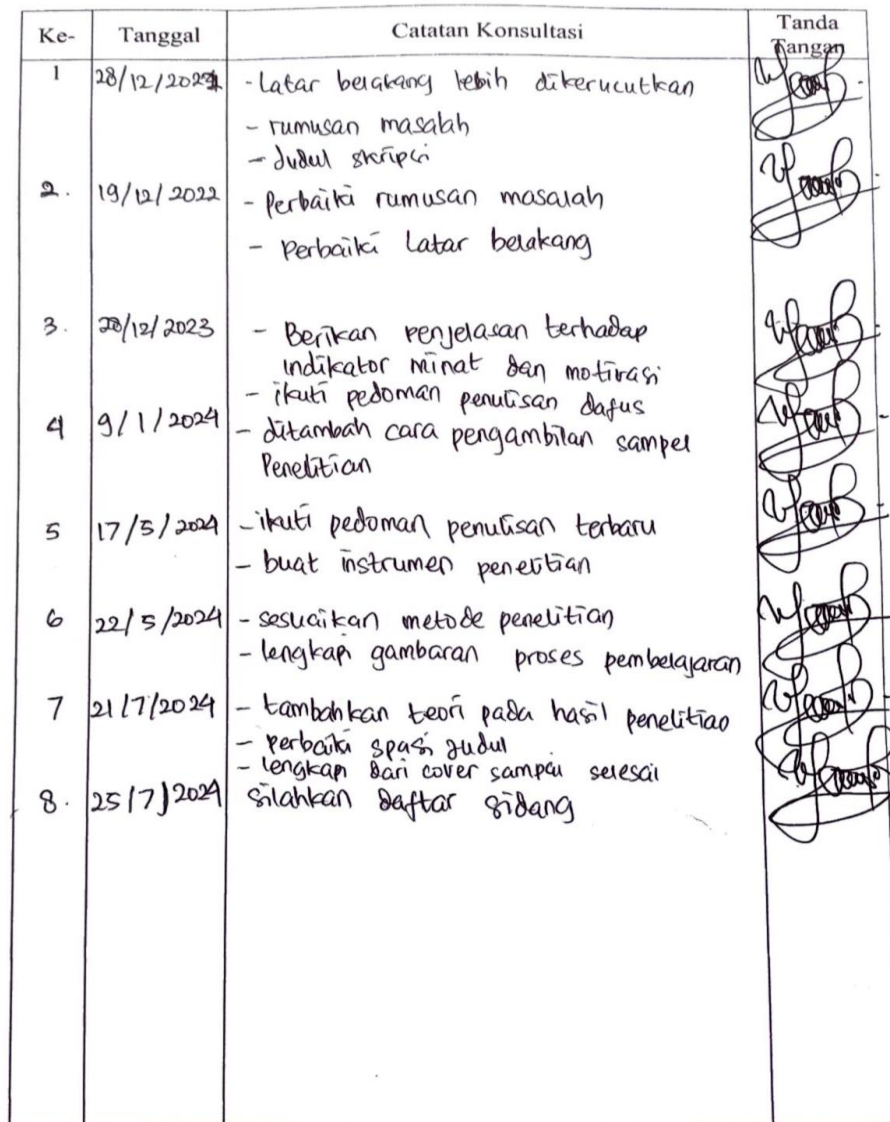 Ke- Tanggal Catatan Konsultasi Tanda Tangan
1 28/12/2021 - Latar belakang lebih dikerucutkan
- rumusan masalah
- Judul skripsi
2. 19/12/2022 - Perbaiki rumusan masalah
- Perbaiki Latar belakang
3. 20/12/2023 - Berikan penjelasan terhadap
indikator minat dan motivasi
- ikuti pedoman penulisan dafus
4 9/1/2024 - ditambah cara pengambilan sampel
Penelitian
5 17/5/2024 - ikuti pedoman penulisan terbaru
- buat instrumen penelitian
6 22/5/2024 - sesuaikan metode penelitian
- lengkapi gambaran proses pembelajaran
7 21/7/2024 - tambahkan teori pada hasil penelitian
- perbaiki spasi judul
- lengkapi dari cover sampai selesai
8. 25/7/2024 silahkan daftar sidang